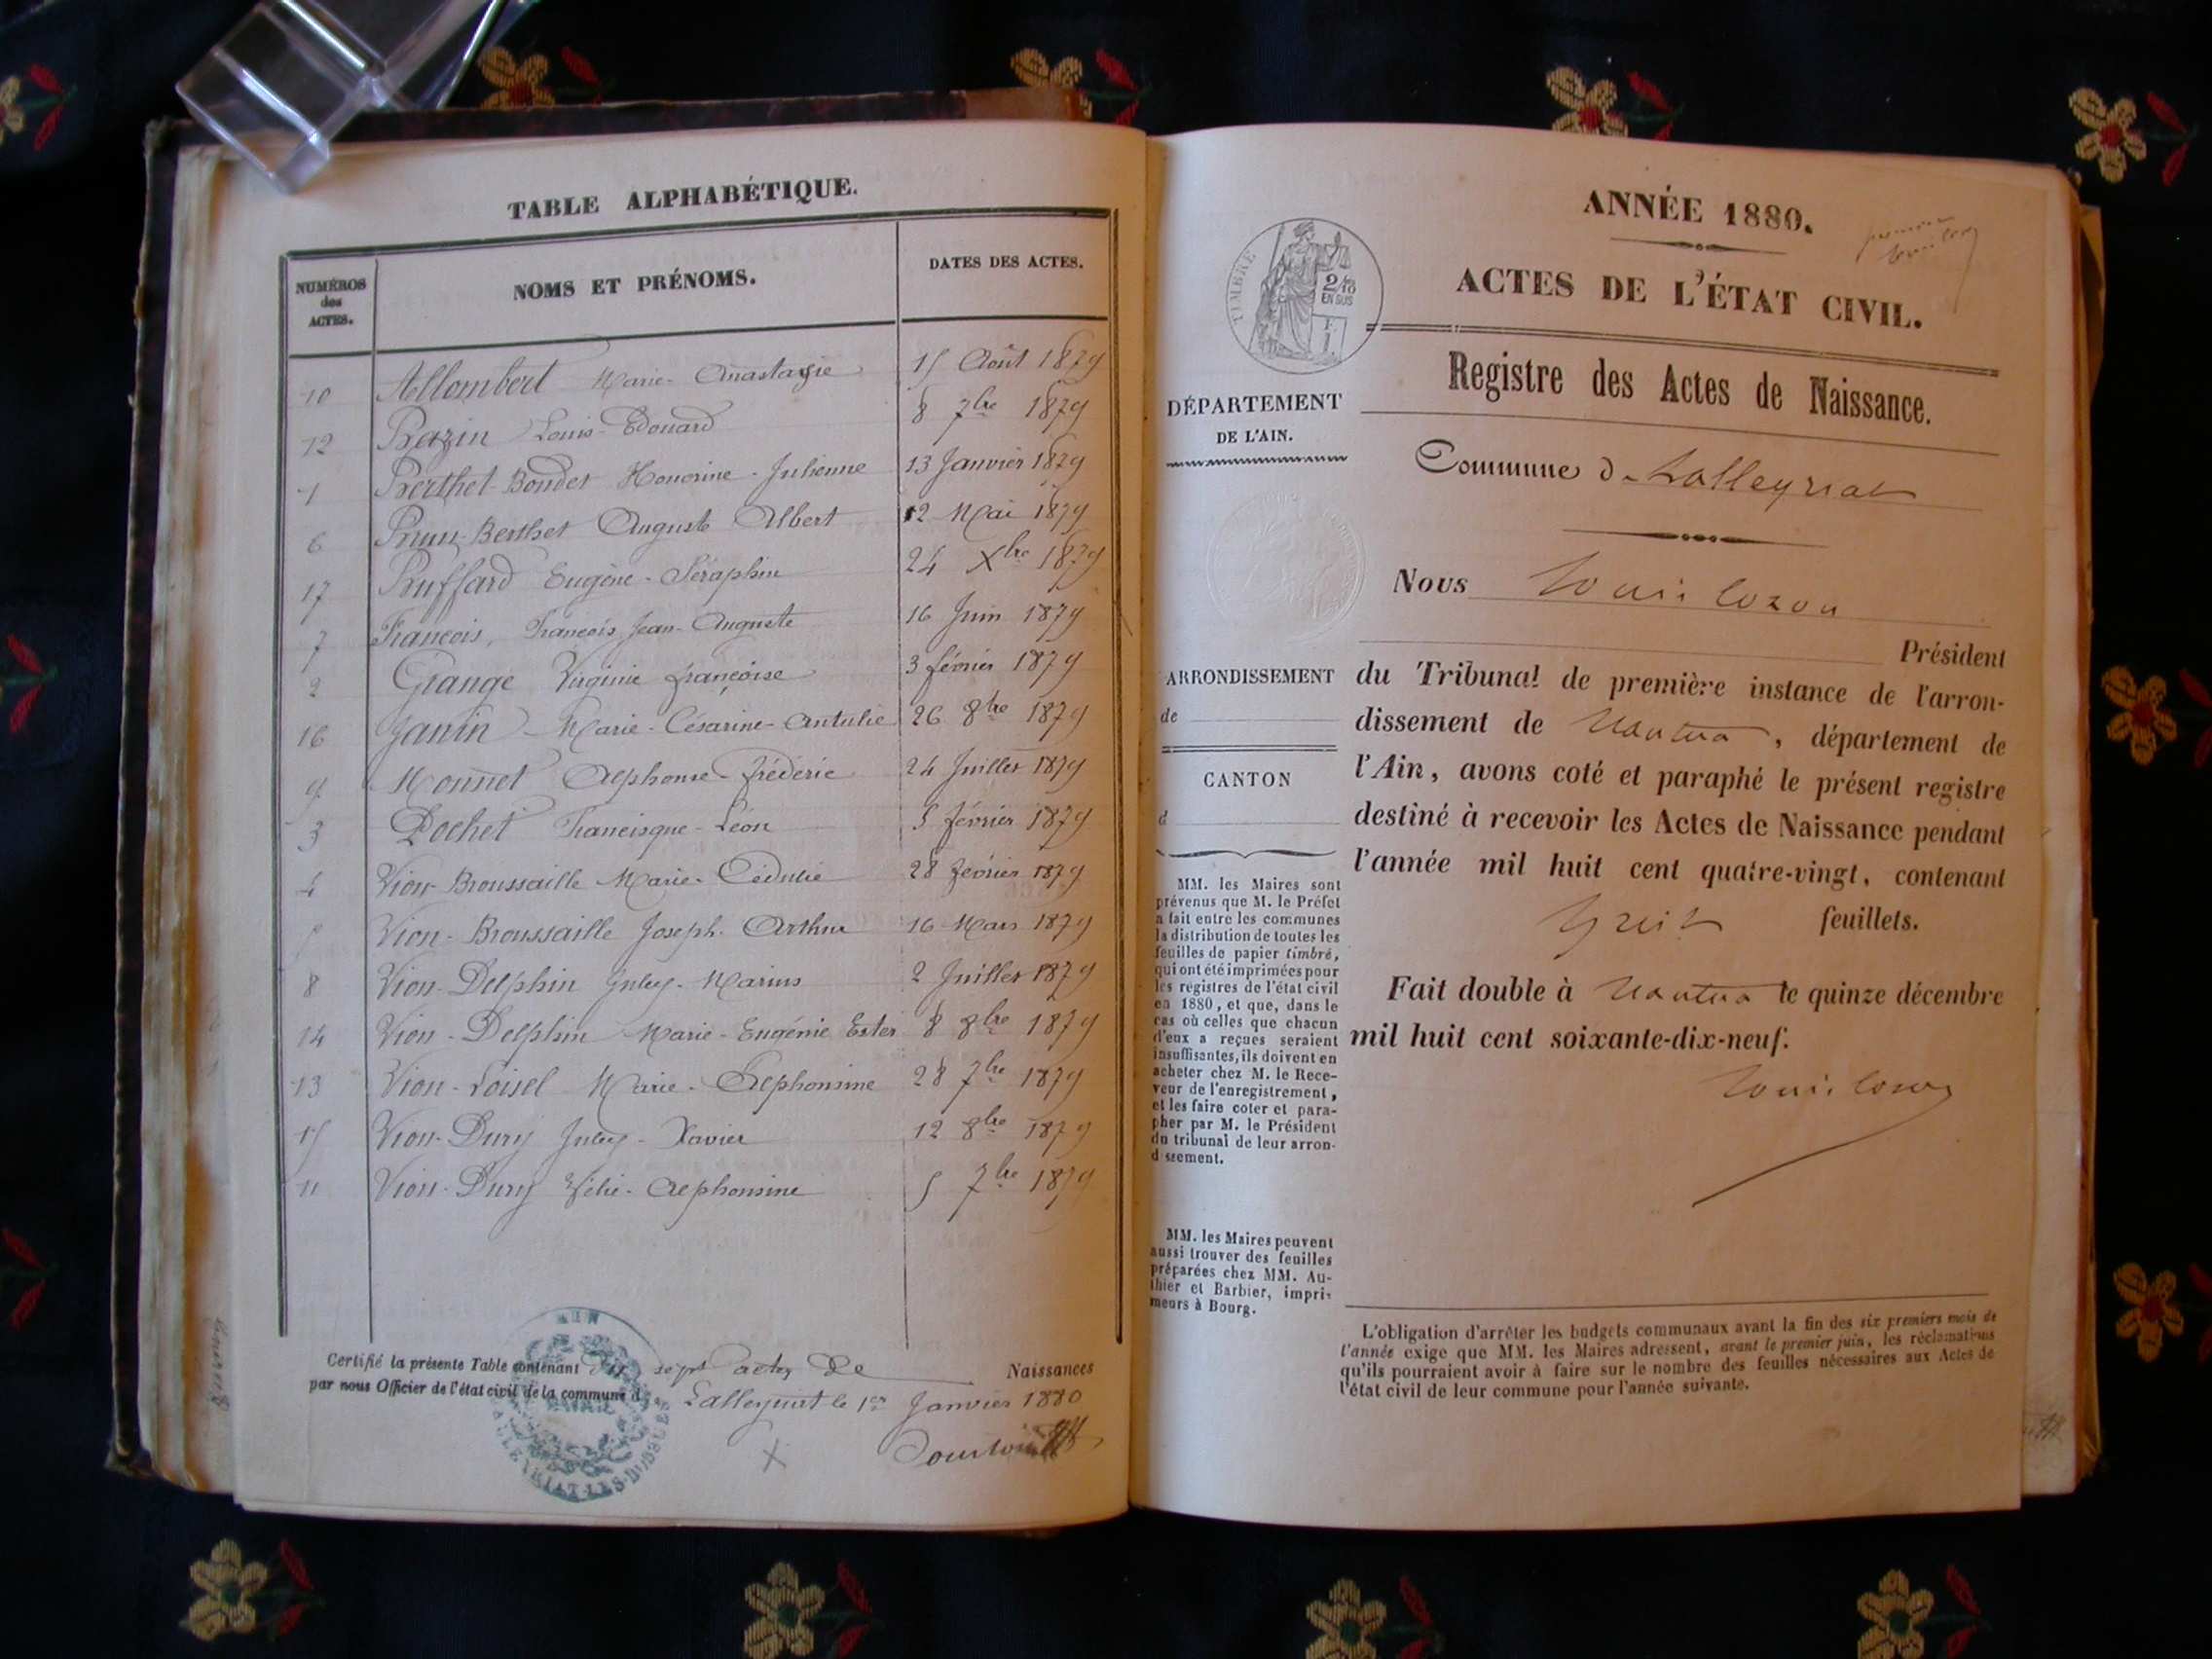 TABLE ALPHABÉTIQUE.
NUMÉROS
des
ACTES.
NOMS ET PRÉNOMS.
DATES DES ACTES.
10 Allombert Marie-Anastasie 15 Août 1879
12 Bazin Louis-Edouard 8 7bre 1879
1 Berthet-Bondet Honorine-Julienne 13 Janvier 1879
6 Brun-Berthet Auguste Albert 12 Mai 1879
17 Buffard Eugène-Séraphin 24 Xbre 1879
7 François, François Jean-Auguste 16 Juin 1879
2 Grange Virginie françoise 3 février 1879
16 Janin Marie-Césarine-Antulie 26 8bre 1879
9 Monnet Alphonse-frédéric 24 Juillet 1879
3 Pochet Francisque-Léon 5 février 1879
4 Vion-Broussaille Marie- 28 février 1879
5 Vion-Broussaille Joseph-Arthur 16 Mars 1879
8 Vion-Delphin Juley-Marius 2 Juillet 1879
14 Vion-Delphin Marie-Eugénie Ester 8 8bre 1879
13 Vion-Loisel Marie-Alphonsine 28 7bre 1879
15 Vion-Dury Juley-Xavier 12 8bre 1879
11 Vion-Dury Alphonsine 5 7bre 1879
Certifié la présente Table contenant dix sept actes de Naissances
par nous Officier de l'état civil de la commune d
Lalleyriat le 1er Janvier 1880
ANNÉE 1880.
ACTES DE L'ÉTAT CIVIL.
TIMBRE
2/10
EN SUS
Registre des Actes de Naissance.
DÉPARTEMENT
DE L'AIN.
Commune de Lalleyriat
Nous
Président
ARRONDISSEMENT
de
CANTON
d
du Tribunal de première instance de l'arron-
dissement de Nantua, département de
l'Ain, avons coté et paraphé le présent registre
destiné à recevoir les Actes de Naissance pendant
l'année mil huit cent quatre-vingt, contenant
feuillets.
Fait double à Nantua le quinze décembre
mil huit cent soixante-dix-neuf.
MM. les Maires sont
prévenus que M. le Préfet
a fait entre les communes
la distribution de toutes les
feuilles de papier timbré,
qui ont été imprimées pour
les registres de l'état civil
en 1880, et que, dans le
cas où celles que chacun
d'eux a reçues seraient
insuffisantes, ils doivent en
acheter chez M. le Rece-
veur de l'enregistrement,
et les faire coter et para-
pher par M. le Président
du tribunal de leur arron-
dissement.
MM. les Maires peuvent
aussi trouver des feuilles
préparées chez MM. Au-
thier et Barbier, impri-
meurs à Bourg.
L'obligation d'arrêter les budgets communaux avant la fin des six premiers mois de
l'année exige que MM. les Maires adressent, avant le premier juin, les réclamations
qu'ils pourraient avoir à faire sur le nombre des feuilles nécessaires aux Actes de
l'état civil de leur commune pour l'année suivante.